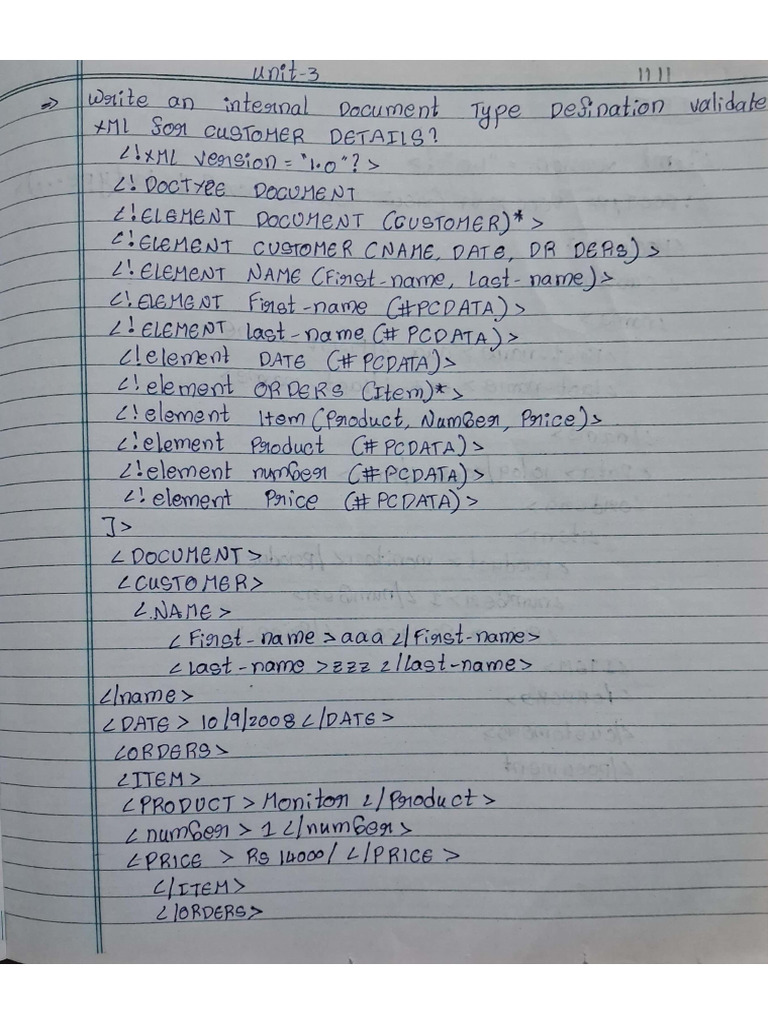 Unit-3
⇒ Write an internal Document Type Defination validate
XMl for CUSTOMER DETAILS?
<!XMl version = "1.0"?>
<! DOCTYPE DOCUMENT
<!ELEMENT DOCUMENT (CUSTOMER)*>
<!ELEMENT CUSTOMER (NAME, DATE, OR DERS)>
<!ELEMENT NAME (First-name, Last-name)>
<!ELEMENT First-name (#PCDATA)>
<!ELEMENT last-name (# PCDATA)>
<!element DATE (# PCDATA)>
<!element ORDERS (Item)*>
<!element Item (Product, Number, Price)>
<!element Product (# PCDATA)>
<!element number (#PCDATA)>
<!element Price (# PCDATA)>
]>
<DOCUMENT>
<CUSTOMER>
<NAME>
<First-name>aaa</First-name>
<last-name>zzz</last-name>
</name>
<DATE>10/9/2008</DATE>
<ORDERS>
<ITEM>
<PRODUCT>Monitor</Product>
<number>1</number>
<PRICE> RS 14000/</PRICE>
</ITEM>
</ORDERS>